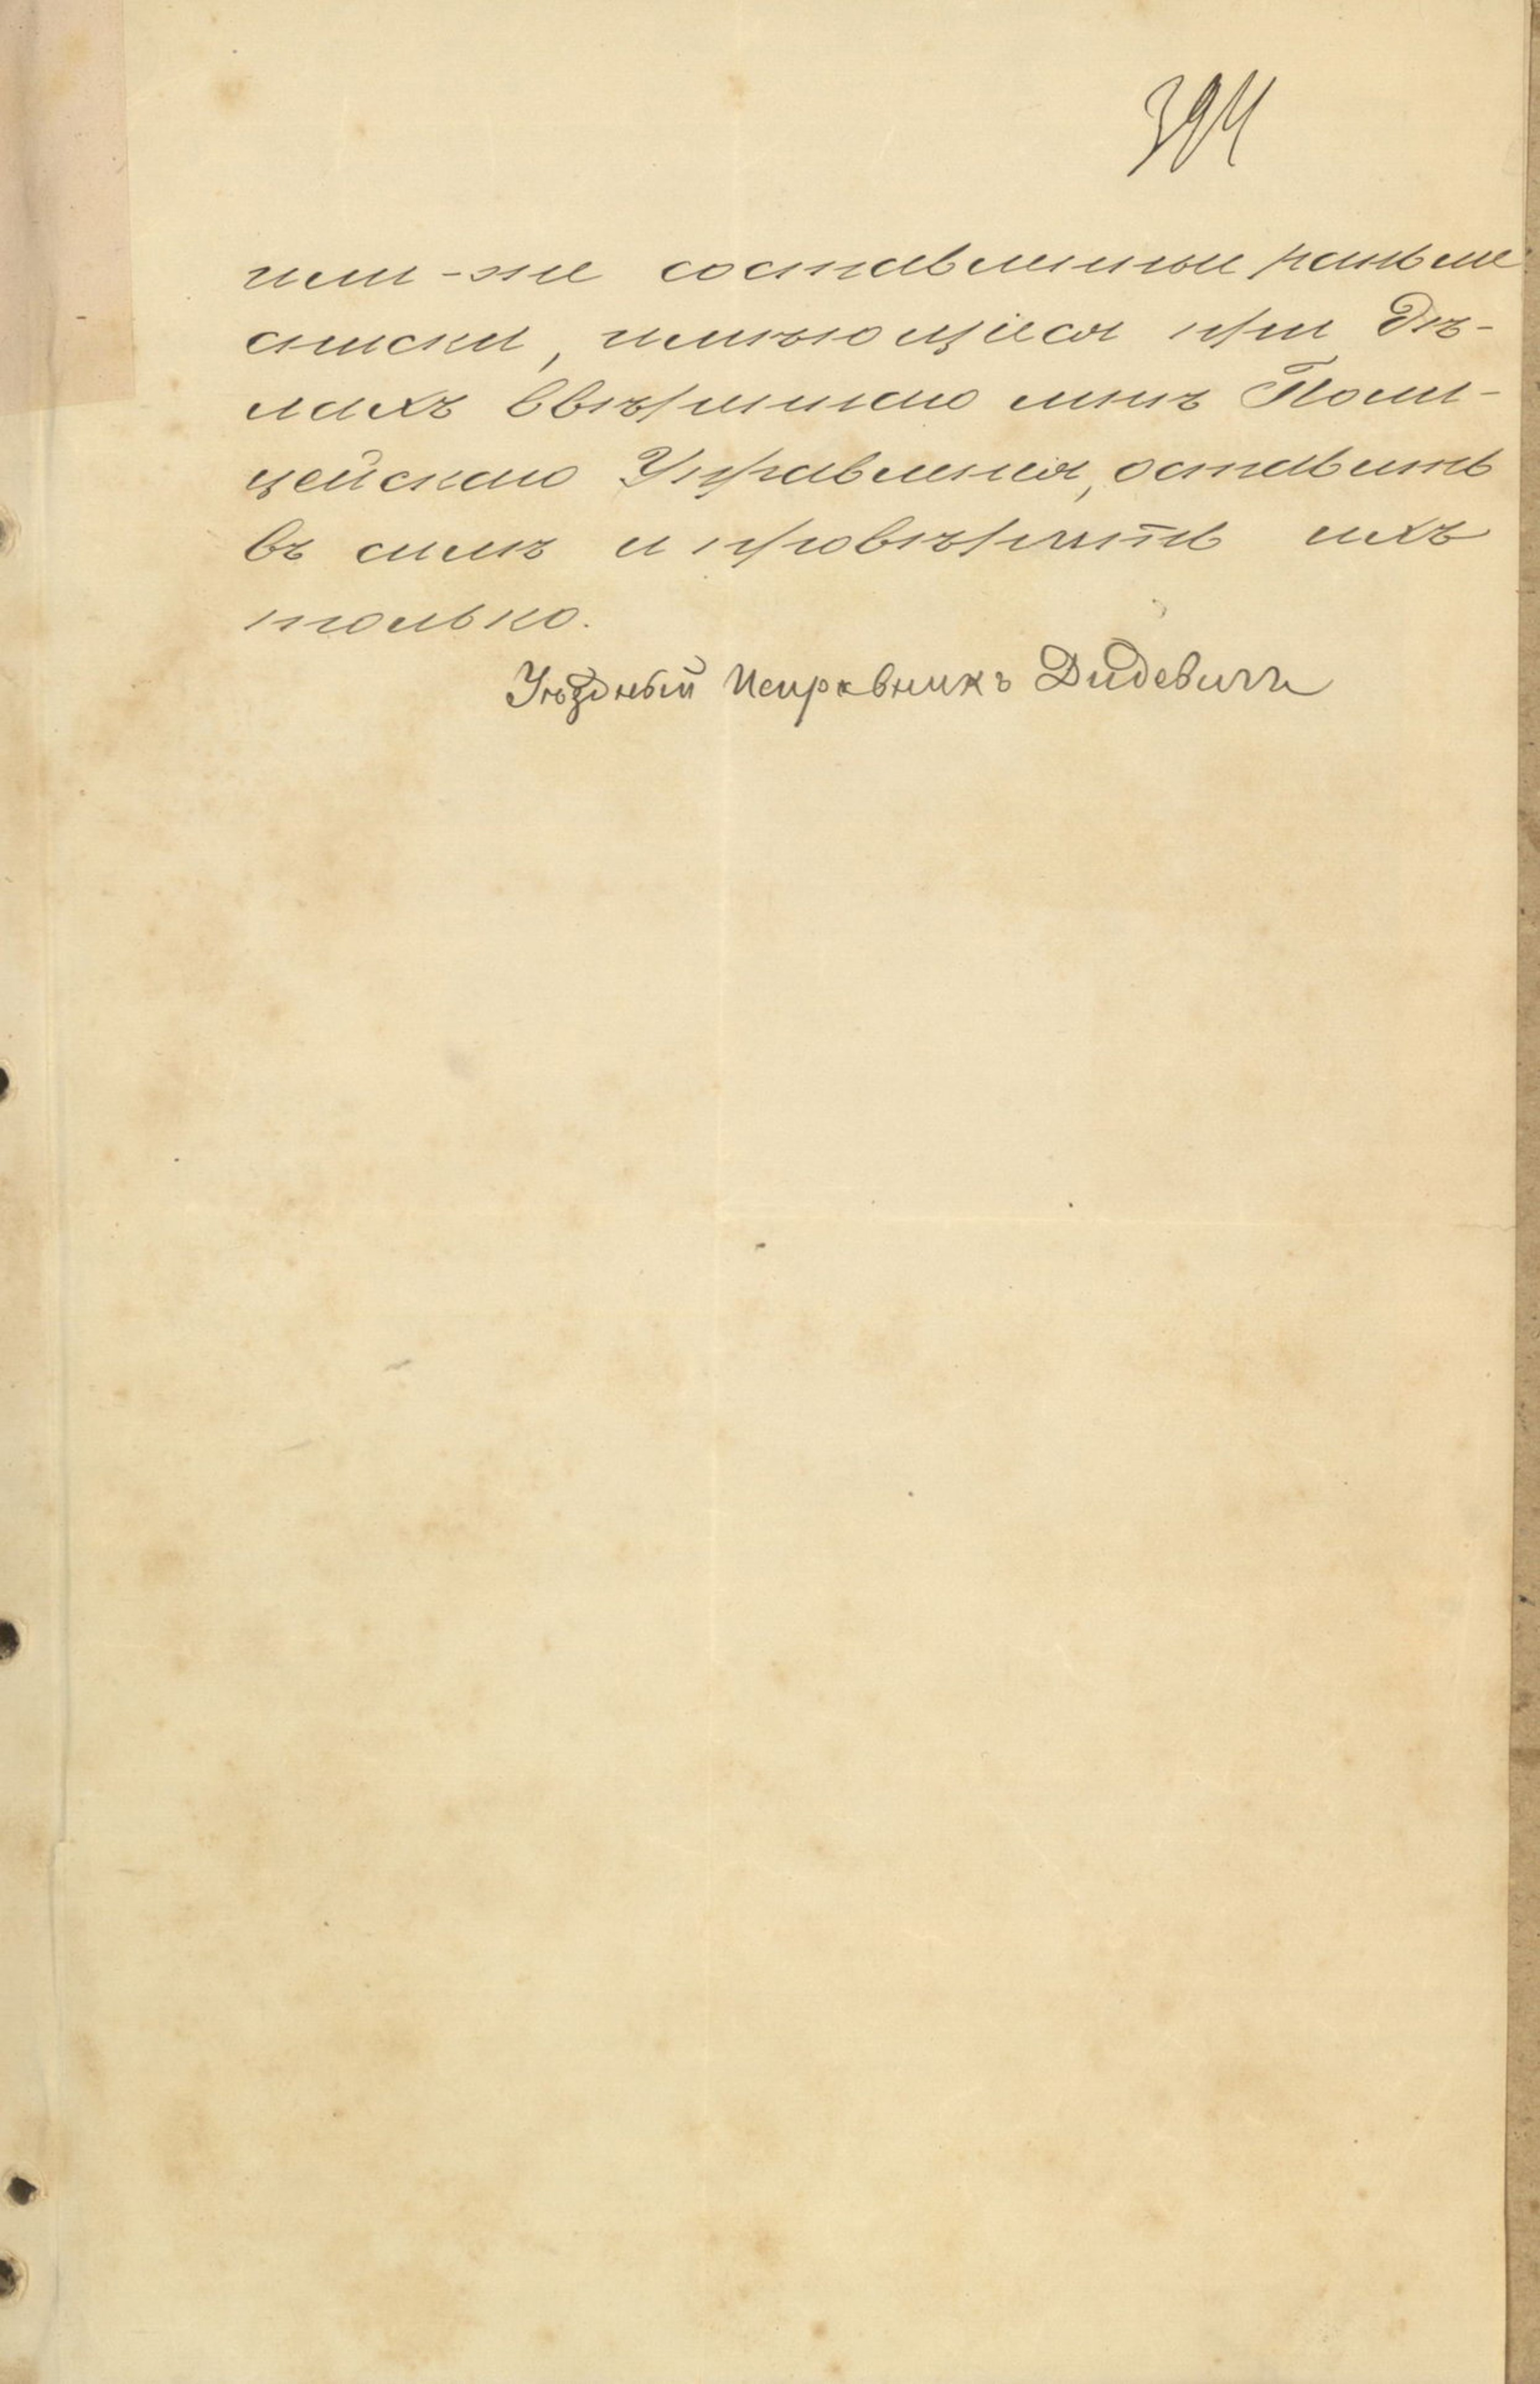 394
или-же составленные раньше
списки, имѣющіеся при дѣ-
лахъ ввѣреннаго мнѣ Поли-
цейскаго Управленія, оставить
въ силѣ и провѣрить ихъ
только.
Уѣздный Исправникъ Дидевичъ